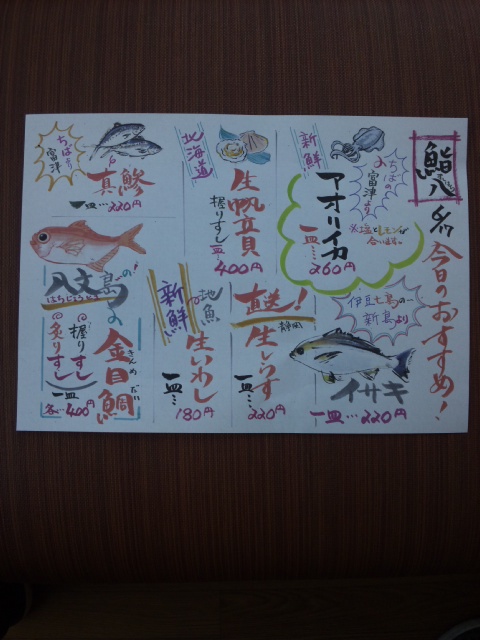 鮨八
今日のおすすめ!
新鮮…
ちばの
富津より
アオリイカ
※塩とレモンが
合います。
一皿…260円
伊豆七島の…
新島より
イサキ
一皿…220円
北海道
生帆立貝
握りすし
一皿
400円
直送!
静岡
生しらす
一皿…220円
新鮮
地魚
生いわし
一皿…180円
ちば
富津
真鯵
一皿…220円
八丈島の!
はちじょうじま
金目鯛
きんめだい
握りすし
炙りすし
一皿
各…400円